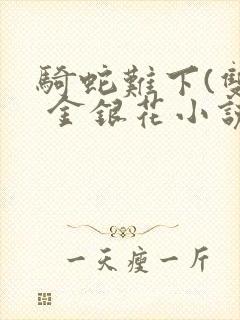 騎蛇難下(雙
金銀花小説
一天瘦一斤